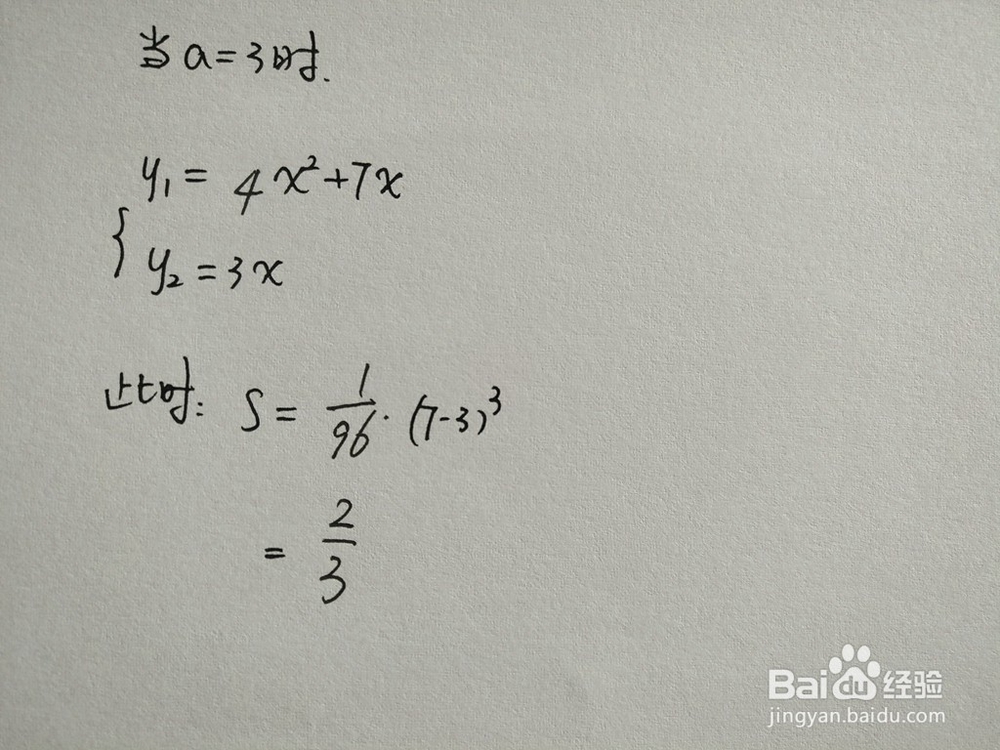 当a=3时.
y₁= 4x²+7x
{
y₂=3x
此时: S= 1/96·(7-3)³
= 2/3
Baidu经验
jingyan.baidu.com